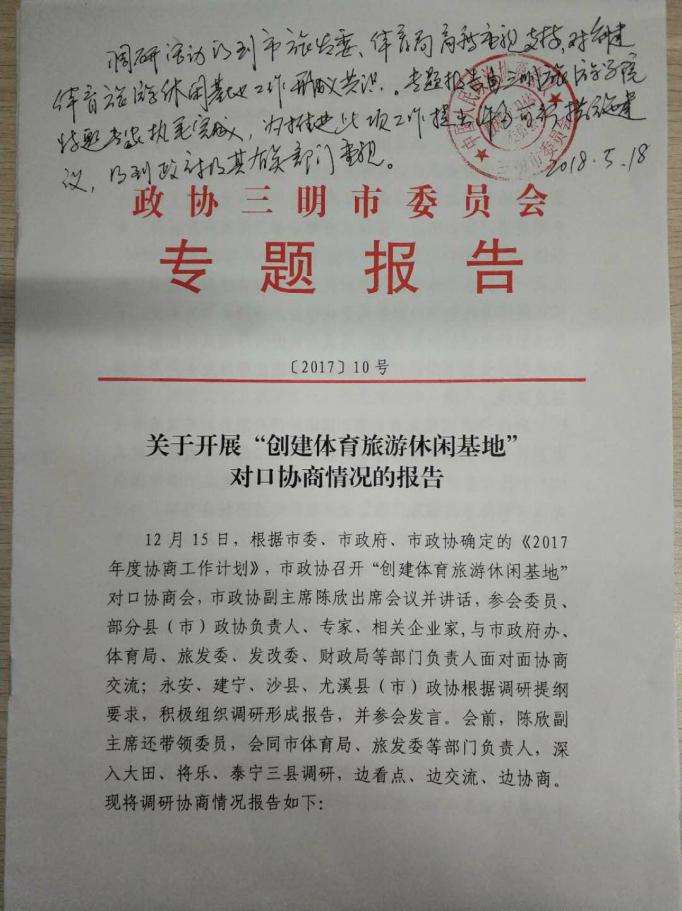 调研活动得到市旅发委、体育局高度重视支持，对创建
体育旅游休闲基地工作形成共识。专题报告由三明旅游学院
特聘专家执笔完成，为推进此项工作提出切实可行措施建
议，得到政府及其有关部门重视。
2018.5.18
政协三明市委员会
专题报告
〔2017〕10号
关于开展“创建体育旅游休闲基地”
对口协商情况的报告
12月15日，根据市委、市政府、市政协确定的《2017
年度协商工作计划》，市政协召开“创建体育旅游休闲基地”
对口协商会，市政协副主席陈欣出席会议并讲话，参会委员、
部分县（市）政协负责人、专家、相关企业家，与市政府办、
体育局、旅发委、发改委、财政局等部门负责人面对面协商
交流；永安、建宁、沙县、尤溪县（市）政协根据调研提纲
要求，积极组织调研形成报告，并参会发言。会前，陈欣副
主席还带领委员，会同市体育局、旅发委等部门负责人，深
入大田、将乐、泰宁三县调研，边看点、边交流、边协商。
现将调研协商情况报告如下：